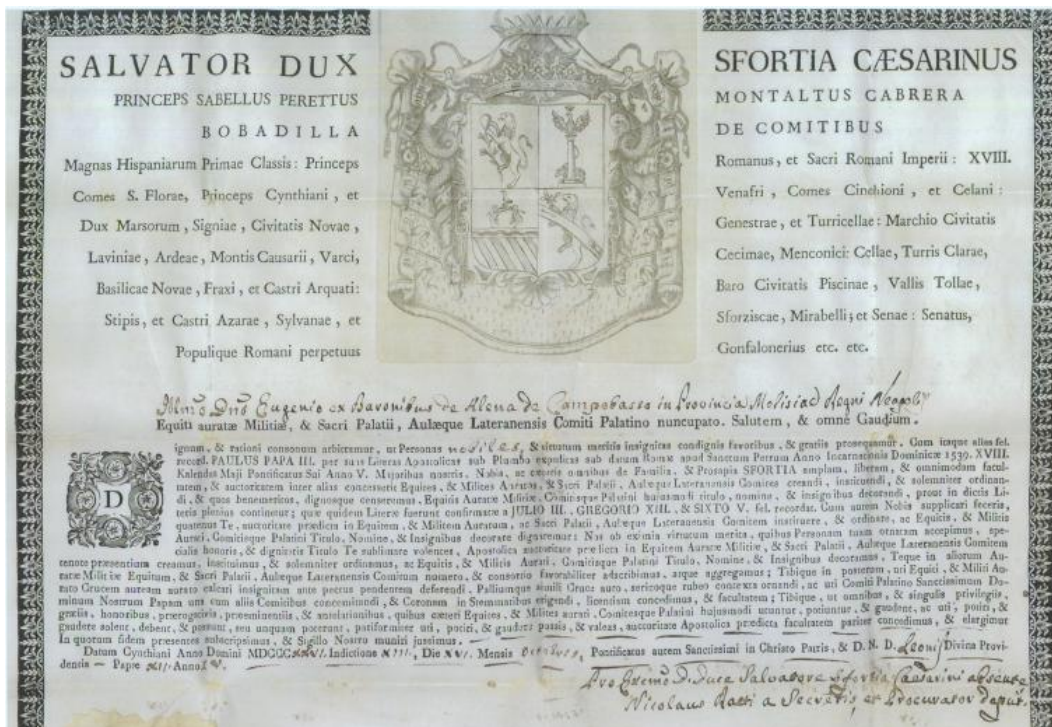 SALVATOR DUX SFORTIA CÆSARINUS
PRINCEPS SABELLUS PERETTUS MONTALTUS CABRERA
BOBADILLA DE COMITIBUS
Magnas Hispaniarum Primae Classis: Princeps Romanus, et Sacri Romani Imperii: XVIII.
Comes S. Florae, Princeps Cynthiani, et Venafri, Comes Cinchioni, et Celani:
Dux Marsorum, Signiae, Civitatis Novae, Genestrae, et Turricellae: Marchio Civitatis
Laviniae, Ardeae, Montis Causarii, Varci, Cecimae, Menconici: Cellae, Turris Clarae,
Basilicae Novae, Fraxi, et Castri Arquati: Baro Civitatis Piscinae, Vallis Tollae,
Stipis, et Castri Azarae, Sylvanae, et Sforziscae, Mirabelli; et Senae: Senatus,
Populique Romani perpetuus Gonfalonerius etc. etc.
Illmo Dno Eugenio ex Baronibus de Alena de Campobasso in Provincia Molisiae Regni Neapolis
Equiti auratæ Militiæ, & Sacri Palatii, Aulæque Lateranensis Comiti Palatino nuncupato. Salutem, & omne Gaudium.
Dignum, & rationi consonum arbitramur, ut Personas nobiles, & virtutum meritis insignitas condignis favoribus, & gratiis prosequamur. Cum itaque alias fel.
record. PAULUS PAPA III. per suas Literas Apostolicas sub Plumbo expeditas sub datum Romæ apud Sanctum Petrum Anno Incarnationis Dominicæ 1539. XVIII.
Kalendas Maji Pontificatus Sui Anno V. Majoribus nostris, Nobis, ac cæteris omnibus de Familia, & Prosapia SFORTIA amplam, liberam, & omnimodam facul-
tatem, & auctoritatem inter alias concesserit Equites, & Milites Auratos, & Sacri Palatii, Aulæque Lateranensis Comites creandi, instituendi, & solemniter ordinan-
di, & quos benemeritos, dignosque censeremus, Equitis Auratæ Militiæ, Comitisque Palatini hujusmodi titulo, nomine, & insignibus decorandi, prout in dictis Li-
teris plenius continetur; quæ quidem Literæ fuerunt confirmatæ a JULIO III. GREGORIO XIII. & SIXTO V. fel. recordat. Cum autem Nobis supplicari feceris,
quatenus Te, auctoritate prædicta in Equitem, & Militem Auratum, ac Sacri Palatii, Aulæque Lateranensis Comitem instituere, & ordinare, ac Equitis, & Militis
Aurati, Comitisque Palatini Titulo, Nomine, & Insignibus decorare dignaremur: Nos ob eximia virtutum merita, quibus Personam tuam ornatam accepimus spe-
cialis honoris, & dignitatis Titulo Te sublimare volentes, Apostolica auctoritate prædicta in Equitem Auratæ Militiæ, & Sacri Palatii, Aulæque Lateranensis Comitem
tenore præsentium creamus, instituimus, & solemniter ordinamus, ac Equitis, & Militis Aurati, Comitisque Palatini Titulo, Nomine, & Insignibus decoramus, Teque in aliorum Au-
ratæ Militiæ Equitum, & Sacri Palatii, Aulæque Lateranensis Comitum numero, & consortio favorabiliter adscribimus, atque aggregamus; Tibique in posterum, uti Equiti, & Militi Au-
rato Crucem auream aurato calcari insignitam ante pectus pendentem deferendi, Palliumque simili Cruce auro, sericoque rubeo contexta ornandi, ac uti Comiti Palatino Sanctissimum Do-
minum Nostrum Papam una cum aliis Comitibus concomitandi, & Coronam in Stemmatibus erigendi, licentiam concedimus, & facultatem; Tibique, ut omnibus, & singulis privilegiis,
gratiis, honoribus, prærogativis, præeminentiis, & antelationibus, quibus cæteri Equites, & Milites aurati, Comitesque Palatini hujusmodi utuntur, potiuntur, & gaudent, ac uti, potiri, &
gaudere solent, debent, & possunt, seu unquam poterunt, pariformiter uti, potiri, & gaudere possis, & valeas, auctoritate Apostolica prædicta facultatem pariter concedimus, & elargimur
In quorum fidem præsentes subscripsimus, & Sigillo Nostro muniri jussimus.
Datum Cynthiani Anno Domini MDCCCXXVI. Indictione XIII, Die XVI. Mensis Octobris, Pontificatus autem Sanctissimi in Christo Patris, & D. N. D. Leonis Divina Provi-
dentia Papæ XII. Anno IV.
Pro Excmo D. Duce Salvatore Sfortia Caesarini absente
Nicolaus Ratti a Secretis et Procurator deput.